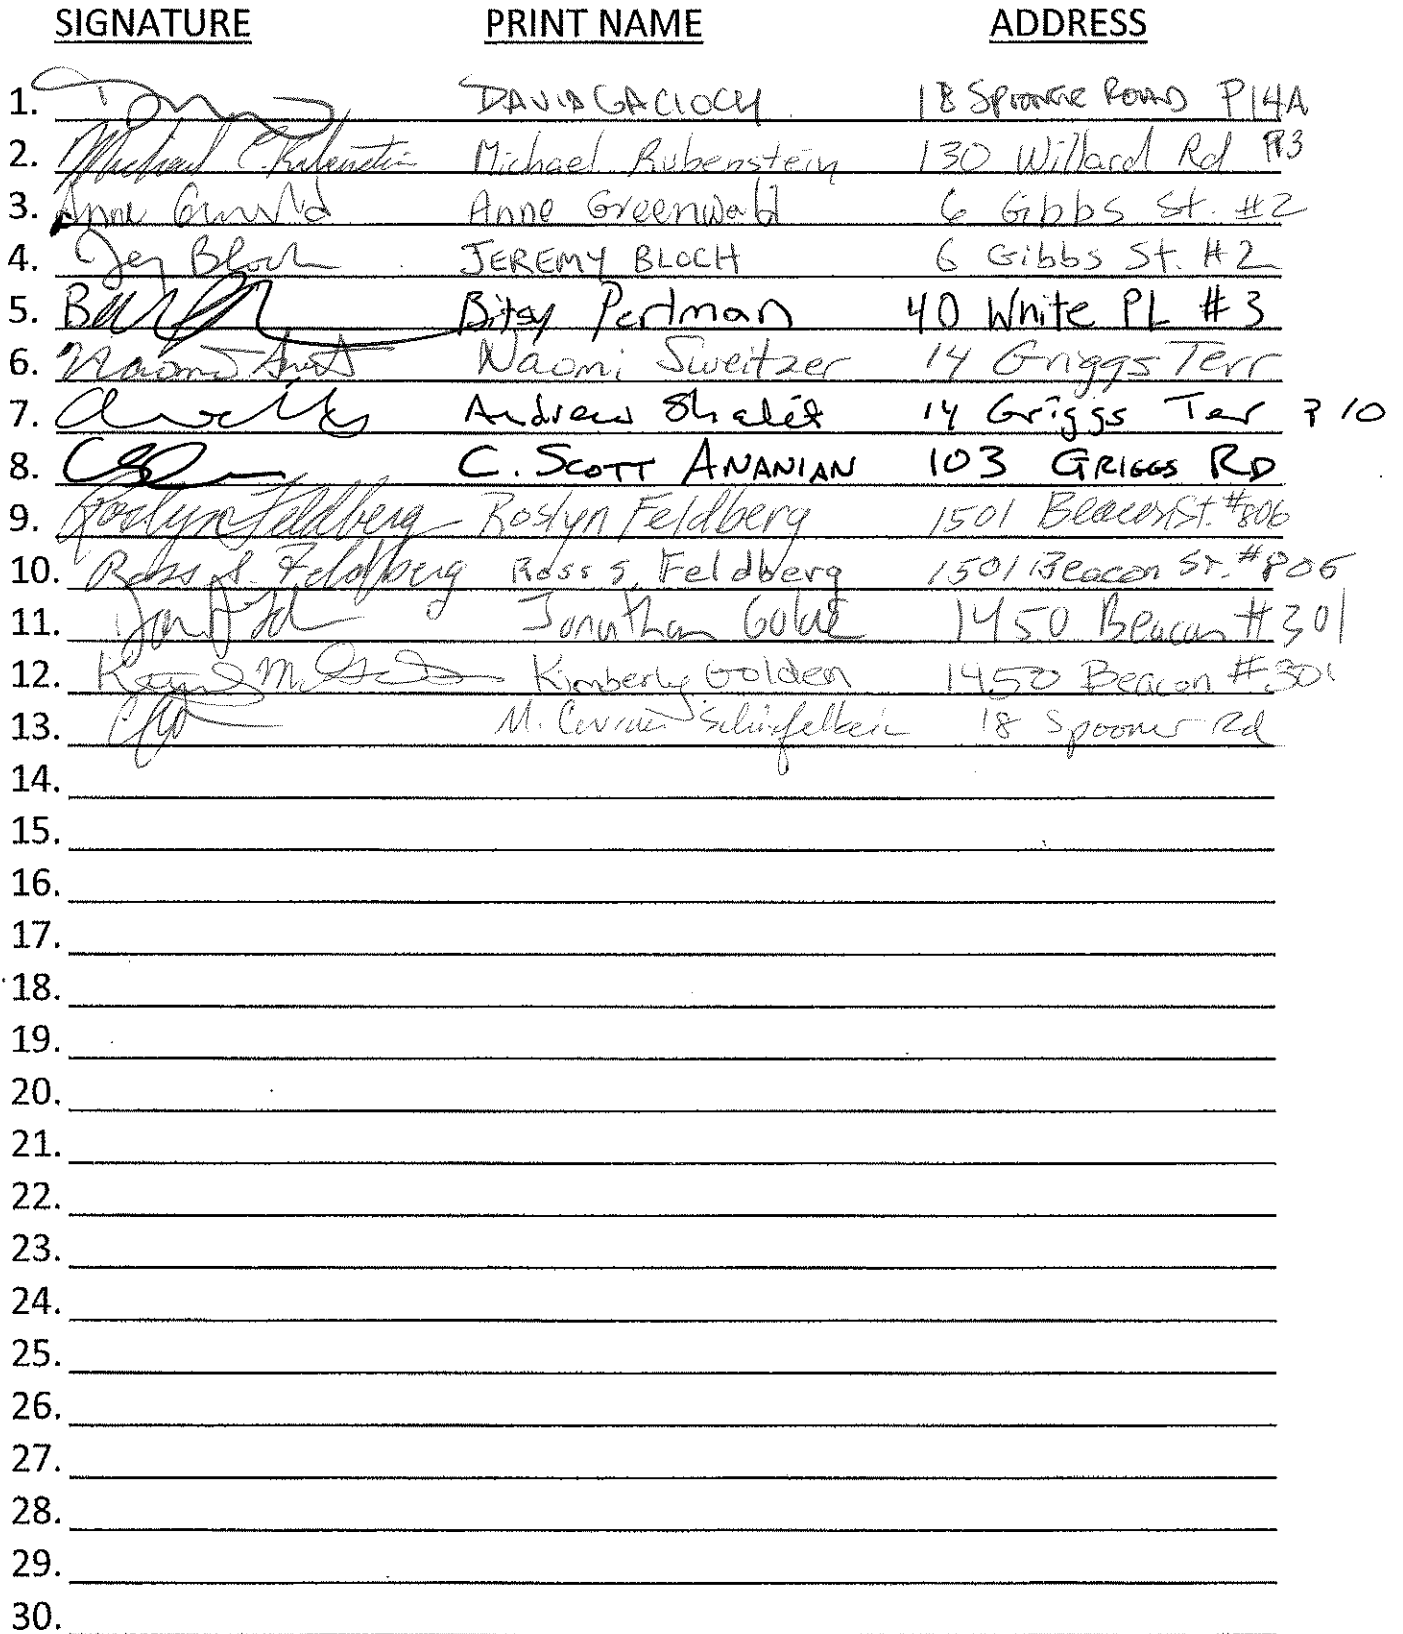 SIGNATURE PRINT NAME ADDRESS
1. DAVID GACIOCH 18 SPOONER ROAD P14A
2. Michael C. Rubenstein Michael Rubenstein 130 Willard Rd P13
3. Anne Greenwald 6 Gibbs St. #2
4. Jey Bloch JEREMY BLOCH 6 Gibbs St. #2
5. Bitsy Perlman 40 White PL #3
6. Naomi Sweitzer 14 Griggs Terr
7. Andrew Shalit 14 Griggs Ter P 10
8. C. SCOTT ANANIAN 103 GRIGGS RD
9. Roslyn Feldberg Roslyn Feldberg 1501 Beacon St. #806
10. Ross S. Feldberg Ross S. Feldberg 1501 Beacon St. #806
11. Jonathan 1450 Beacon #301
12. Kimberly Golden 1450 Beacon #301
13. M. 18 Spooner Rd
14.
15.
16.
17.
18.
19.
20.
21.
22.
23.
24.
25.
26.
27.
28.
29.
30.